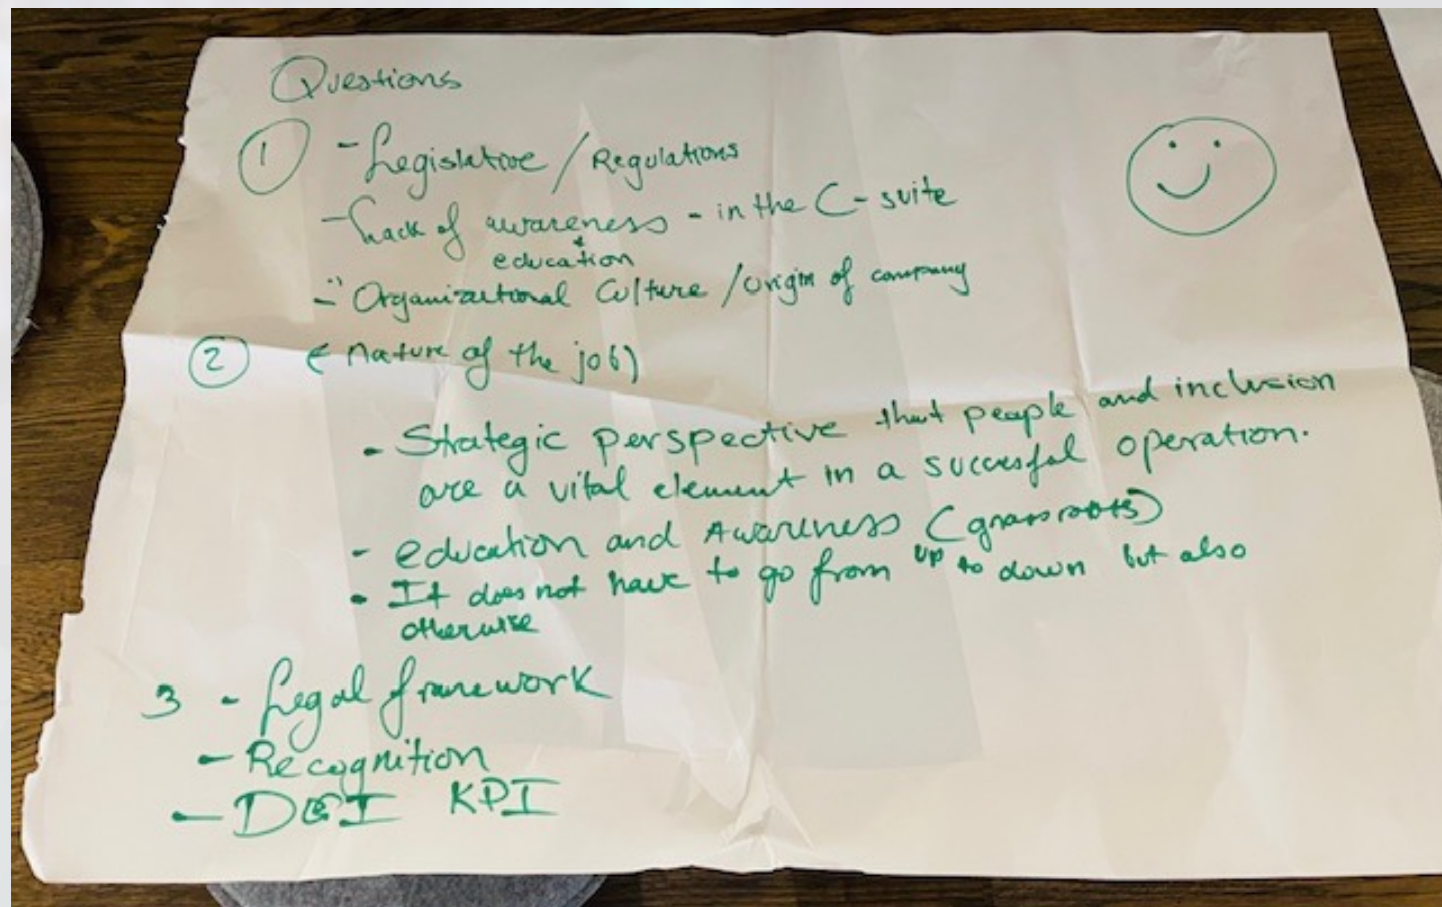 Questions
1 - Legislative / Regulations
- Lack of awareness - in the C-suite
+
education
- Organizational Culture / Origin of company
2 (nature of the job)
- Strategic perspective that people and inclusion
are a vital element in a succesful operation.
- education and Awareness (grassroots)
- It does not have to go from up to down but also
otherwise
3 - Legal framework
- Recognition
- D&I KPI